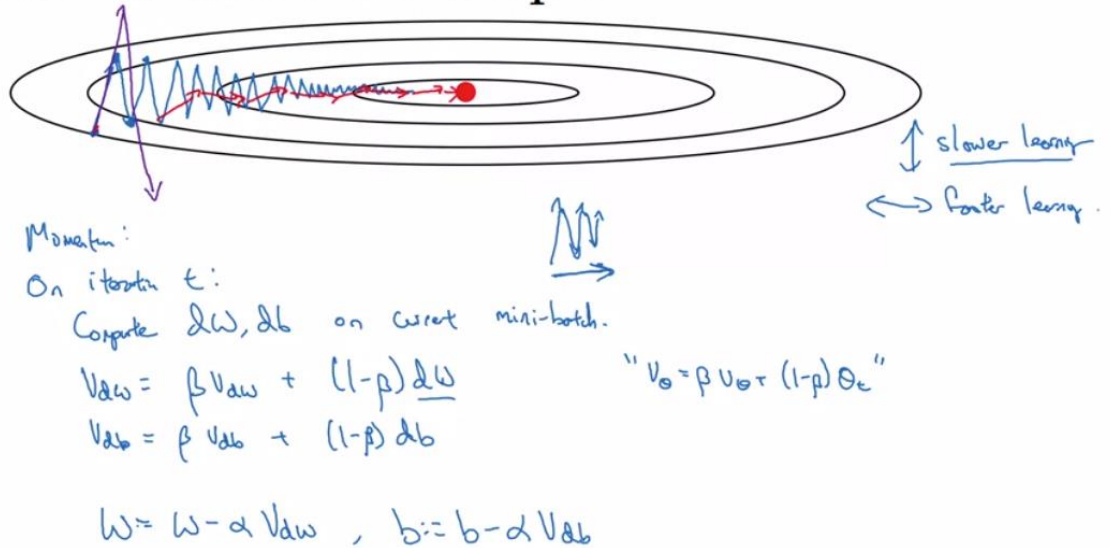 slower learning
faster learning.
Momentum:
On iteration t:
Compute dW, db on current mini-batch.
Vdw = β Vdw + (1-β) dW
"Vθ = β Vθ + (1-β) θt"
Vdb = β Vdb + (1-β) db
W := W - α Vdw , b := b - α Vdb